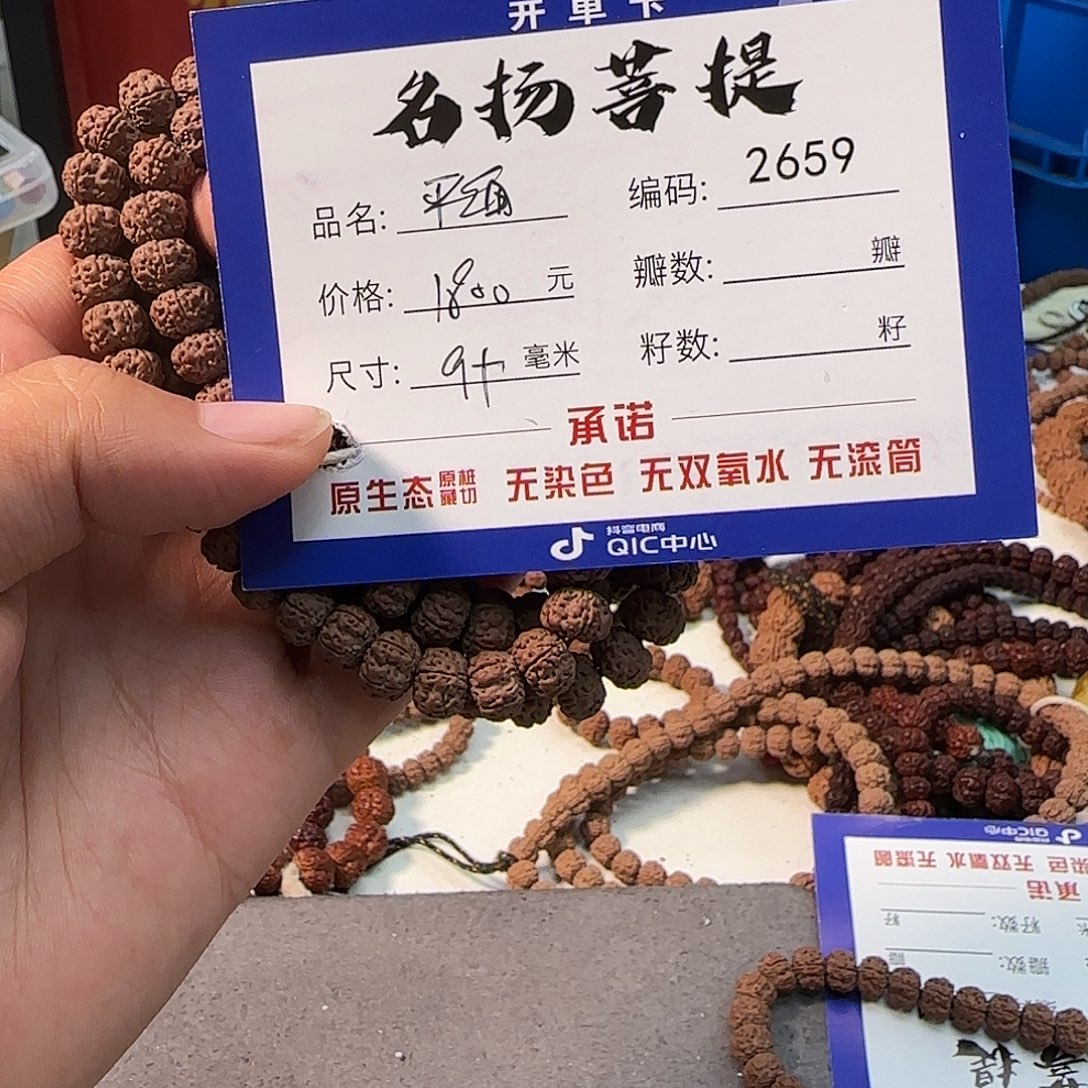 开单卡
名扬菩提
品名: 平通 编码: 2659
价格: 1800 元 瓣数: 瓣
尺寸: 9+ 毫米 籽数: 籽
承诺
原生态 原桩藏切 无染色 无双氧水 无滚筒
抖音电商
QIC中心
QIC中心
染色 无双氧水 无滚筒
承诺
籽数: 籽
瓣数: 瓣
菩提